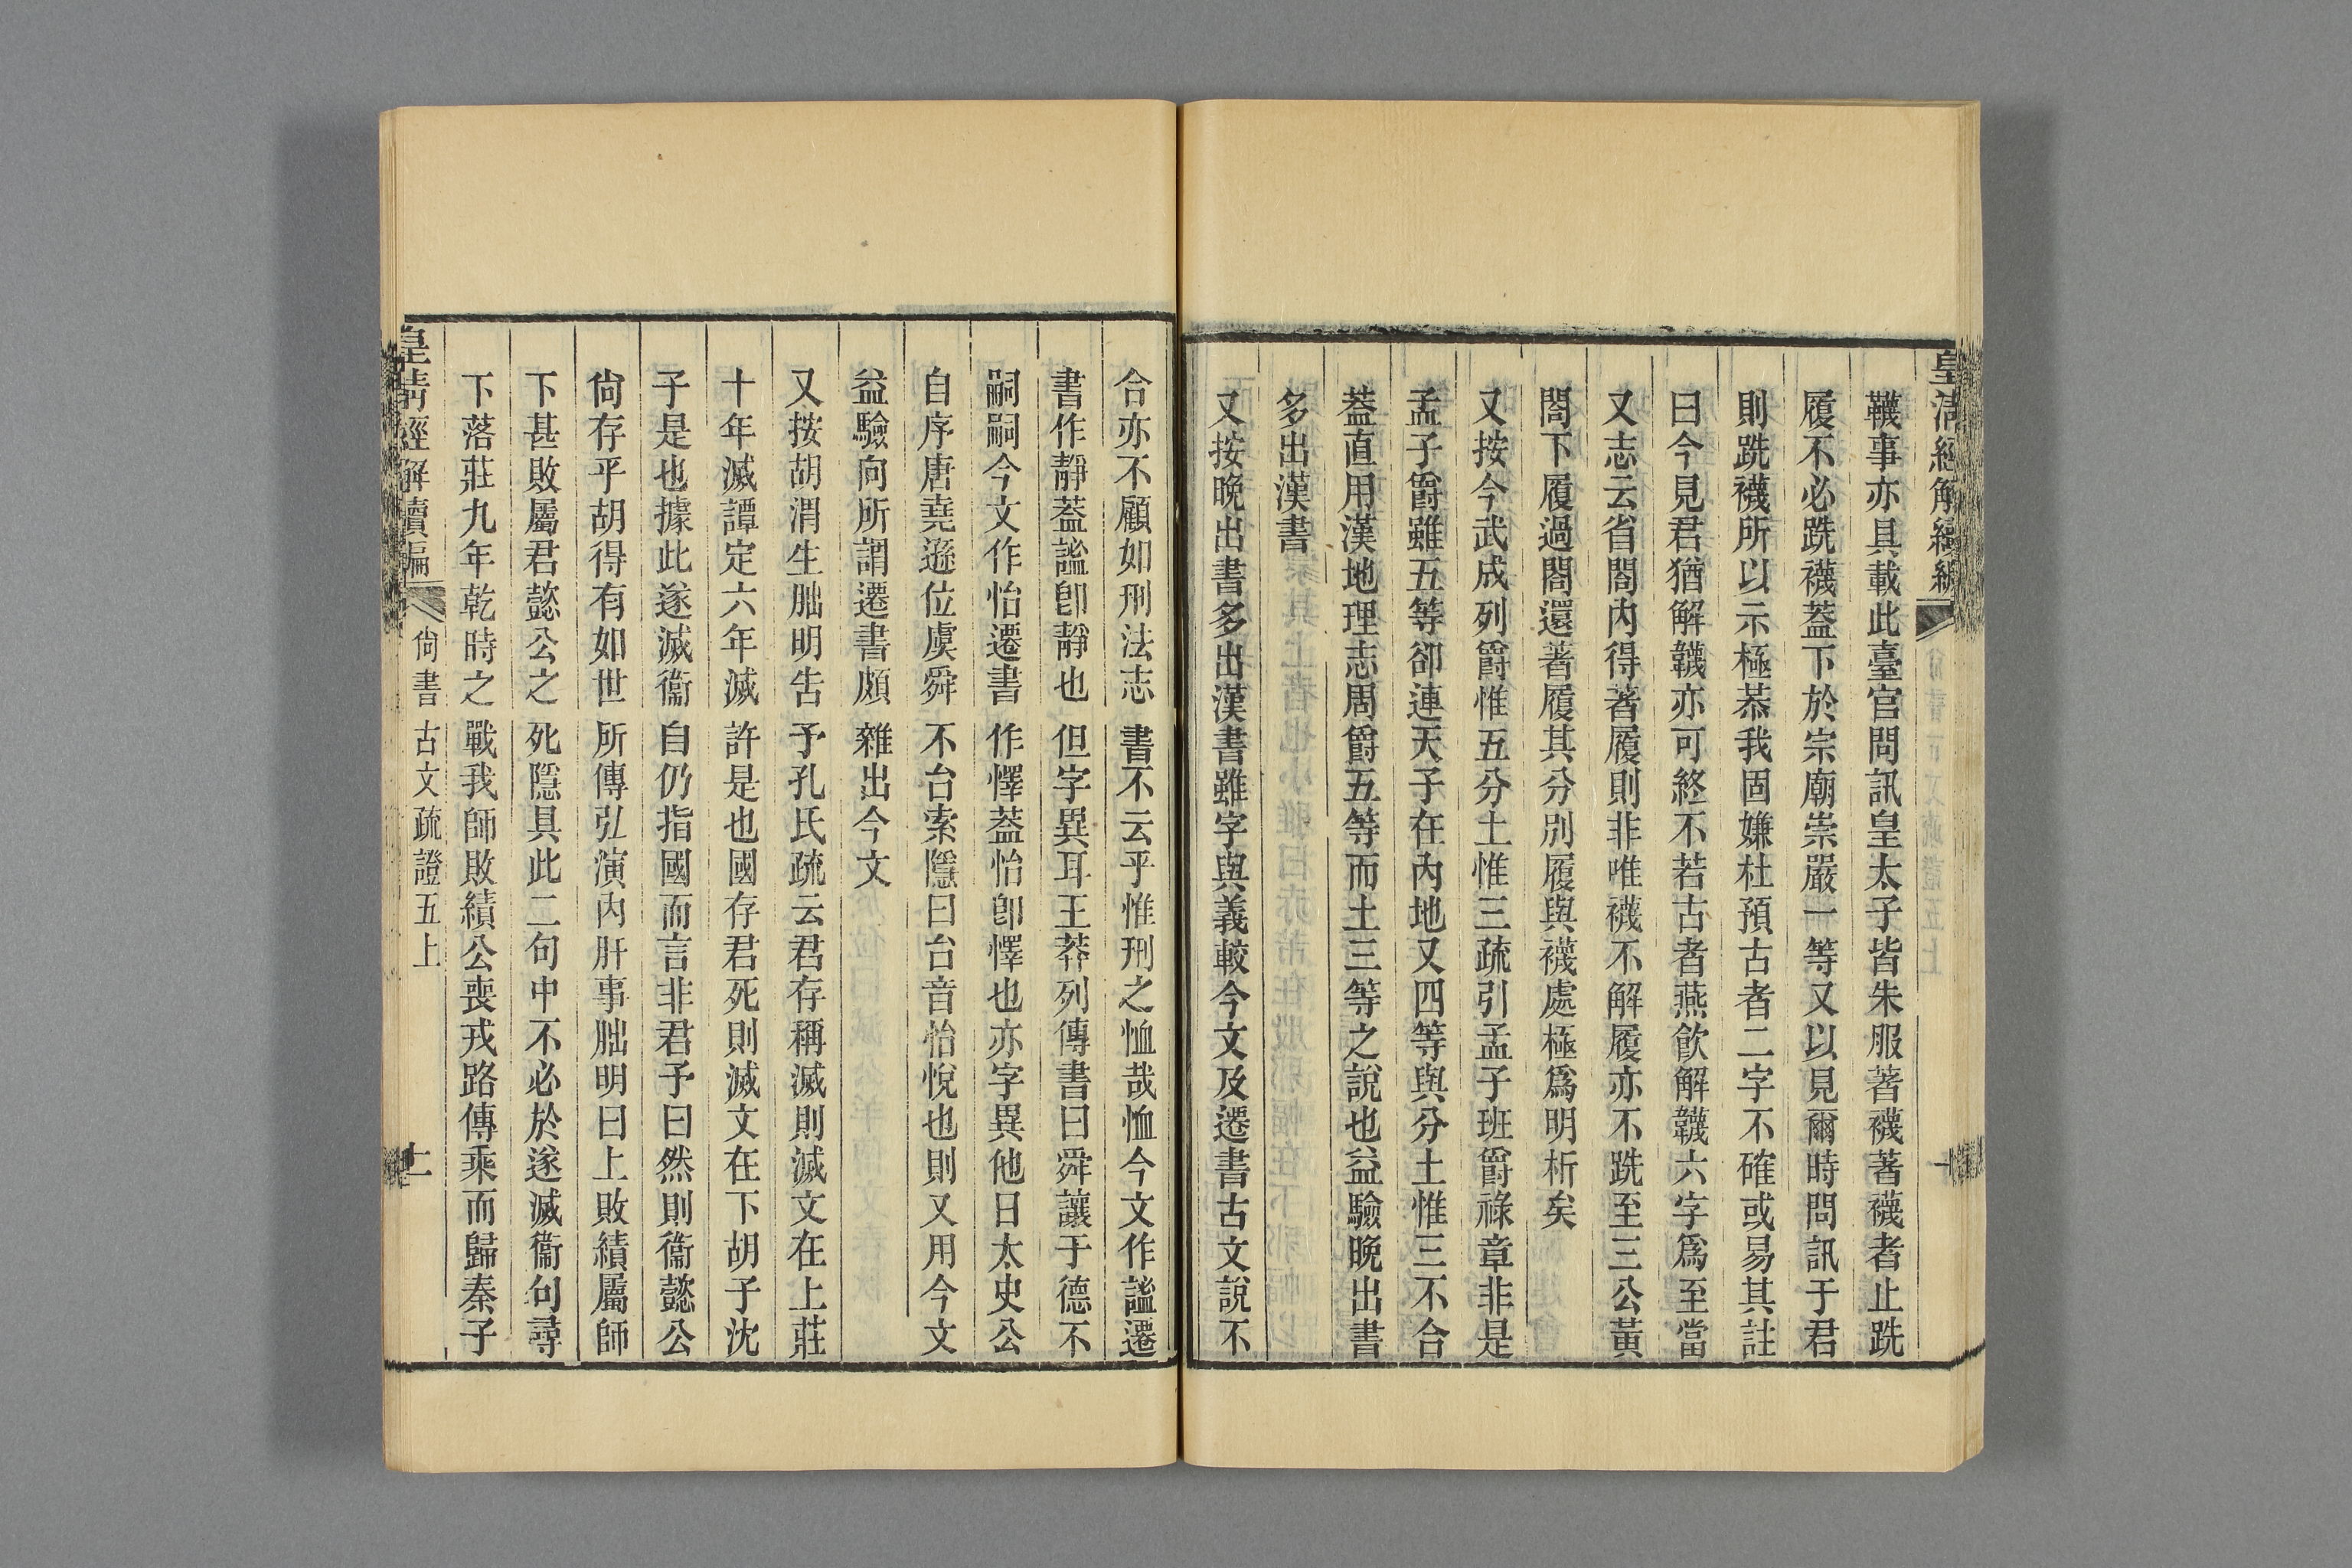 皇清經解續編
韈事亦具載此臺官問訊皇太子皆朱服著襪著襪者止跣
履不必跣襪葢下於宗廟崇嚴一等又以見爾時問訊于君
則跣襪所以示極恭我固嫌杜預古者二字不確或易其註
曰今見君猶解韈亦可終不若古者燕飮解韈六字爲至當
又志云省閤內得著履則非唯襪不解履亦不跣至三公黃
閤下履過閤還著履其分別履與襪處極爲明析矣
又按今武成列爵惟五分土惟三疏引孟子班爵祿章非是
孟子爵雖五等卻連天子在內地又四等與分土惟三不合
葢直用漢地理志周爵五等而土三等之說也益驗晚出書
多出漢書
又按晚出書多出漢書雖字與義較今文及遷書古文說不
合亦不顧如刑法志書不云乎惟刑之恤哉恤今文作謐遷
書作靜葢謐卽靜也但字異耳王莽列傳書曰舜讓于德不
嗣嗣今文作怡遷書作懌葢怡卽懌也亦字異他日太史公
自序唐堯遜位虞舜不台索隱曰台音怡悅也則又用今文
益驗向所謂遷書頗雜出今文
又按胡渭生朏明告予孔氏疏云君存稱滅則滅文在上莊
十年滅譚定六年滅許是也國存君死則滅文在下胡子沈
子是也據此遂滅衞自仍指國而言非君予曰然則衞懿公
尙存乎胡得有如世所傳弘演內肝事朏明曰上敗績屬師
下甚敗屬君懿公之死隱具此二句中不必於遂滅衞句尋
下落莊九年乾時之戰我師敗績公喪戎路傳乘而歸秦子
皇清經解續編 尙書古文疏證五上 十一